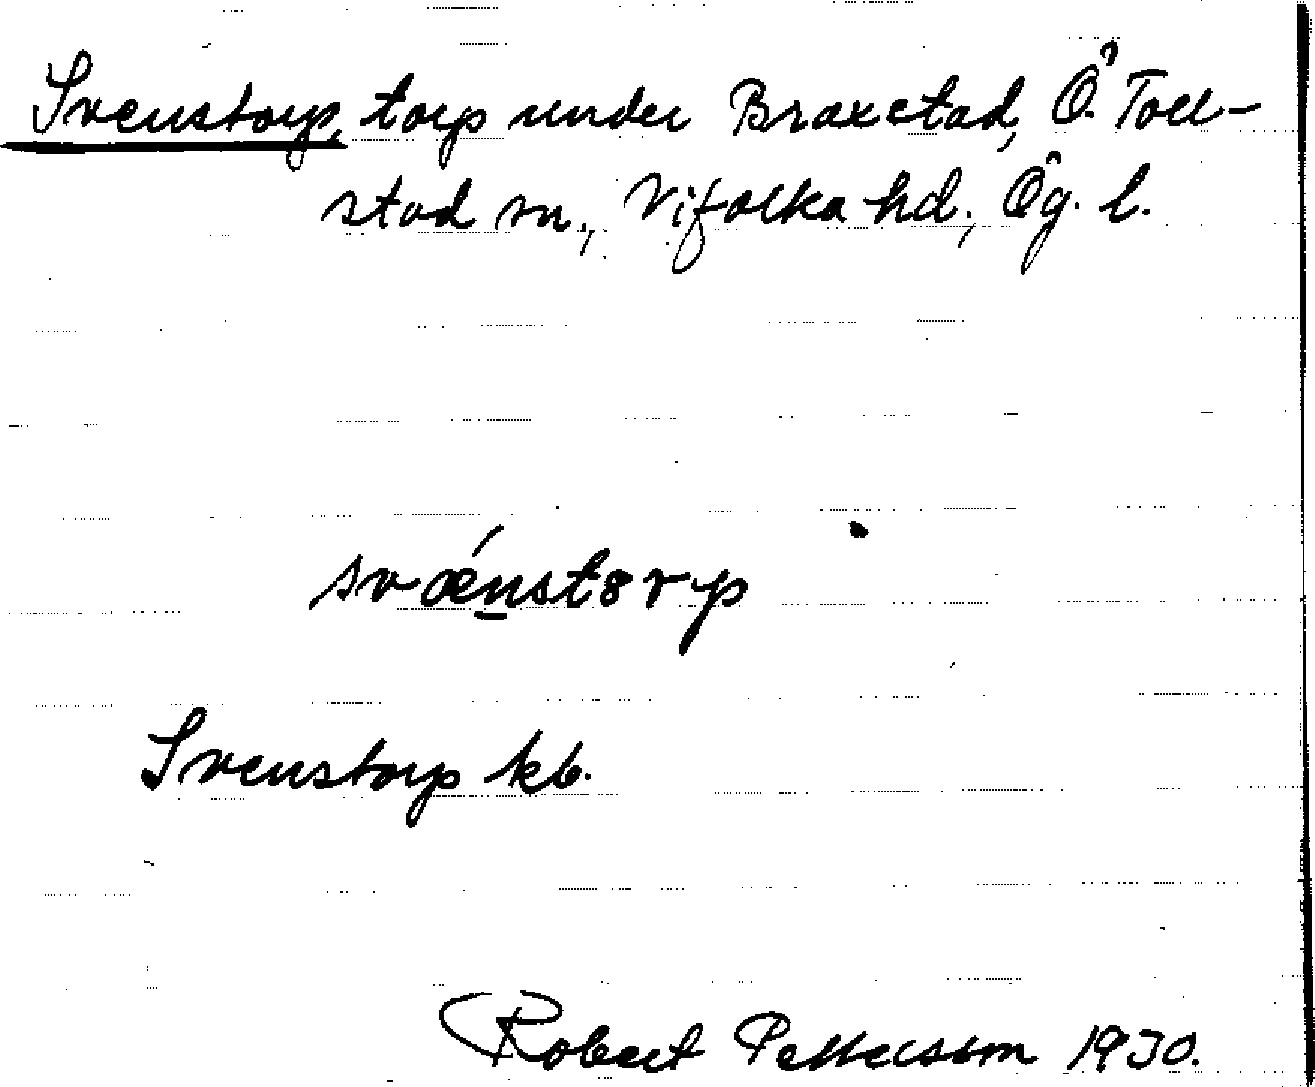 Svenstorp, torp under Braxstad, Ö. Toll-
stad sn., Vifolka hd., Ög. l.
svǽnstorp
Svenstorp kb.
Robert Pettersson 1930.